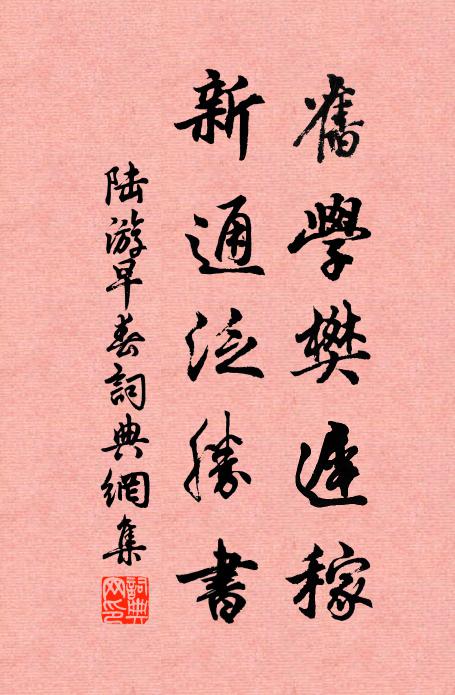 舊學樊遲稼
新通泛勝書
陸游早春詞典網集
詞典網印